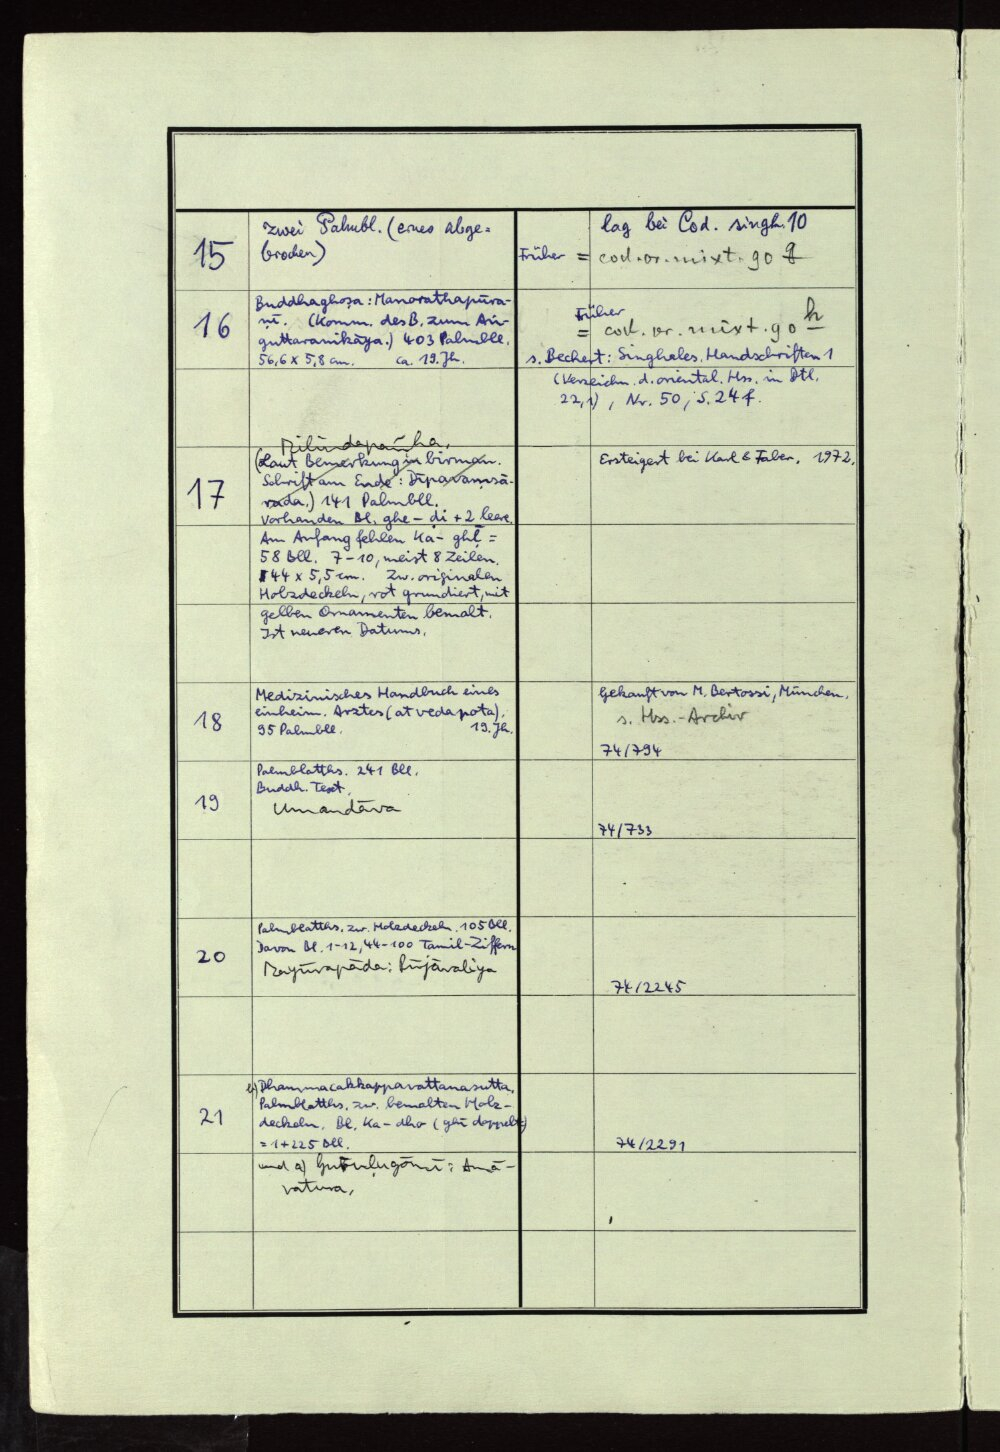 15
zwei Palmbl. (eines abge=
brochen)
lag bei Cod. singh. 10
Früher = cod. or. mixt. 90 g
16
Buddhaghosa: Manorathapūra-
ṇī. (Komm. des B. zum Aṅ-
guttaranikāya.) 403 Palmbll.
56,6 x 5,8 cm. ca. 19. Jh.
Früher
= cod. or. mixt. 90 h
s. Bechert: Singhales. Handschriften 1
(Verzeichn. d. oriental. Hss. in Dtl.
22,1), Nr. 50, S. 24 f.
17
Milindapañha.
(Laut Bemerkung in birman.
Schrift am Ende: Dīpavaṃsā-
vada.) 141 Palmbll.
Vorhanden Bl. ghe - ḍi + 2 leere.
Am Anfang fehlen Ka - ghḷ =
58 Bll. 7-10, meist 8 Zeilen.
44 x 5,5 cm. Zw. originalen
Holzdeckeln, rot grundiert, mit
gelben Ornamenten bemalt.
Ist neueren Datums.
Ersteigert bei Karl & Faber, 1972.
18
Medizinisches Handbuch eines
einheim. Arztes (at veda pota).
95 Palmbll. 19. Jh.
Gekauft von M. Bertossi, München.
s. Hss.-Archiv
74/794
19
Palmblatths. 241 Bll.
Buddh. Text.
Umandāva
74/733
20
Palmblatths. zw. Holzdeckeln. 105 Bll.
Davon Bl. 1-12, 44-100 Tamil-Ziffern
Mayūrapāda: Pūjāvaliya
74/2245
21
b) Dhammacakkappavattanasutta.
Palmblatths. zw. bemalten Holz-
deckeln. Bl. Ka - dho (ghī doppelt)
= 1 + 225 Bll.
und a) Guruḷugōmī: Amā-
vatura.
74/2291